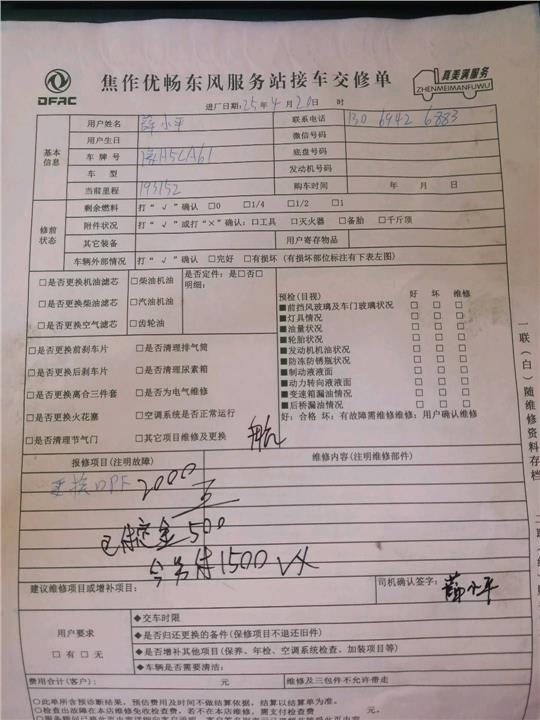 DFAC
焦作优畅东风服务站接车交修单
真美满服务
ZHENMEIMANFUWU
进厂日期: 25年 4月 20日 时
基本信息
用户姓名 薛小平 联系电话 130 6942 6883
用户生日 微信号码
车牌号 豫H5LA61 底盘号码
车型 发动机号码
当前里程 193152 购车时间 年 月 日
修前状态
剩余燃料 打“√”确认 □0 □1/4 □1/2 □1
附件状况 打“√”或打“×”确认: □工具 □灭火器 □备胎 □千斤顶
其它装备 用户寄存物品
车辆外部情况 打“√”确认 □完好 □有损坏 (有损坏部位标注有下表左图)
□是否更换机油滤芯 □柴油机油 是否定件: 是□否□
明细:
□是否更换柴油滤芯 □汽油机油
□是否更换空气滤芯 □齿轮油
预检(目视) 好 坏 维修
■前挡风玻璃及车门玻璃状况 □ □ □
■灯具情况 □ □ □
■油量状况 □ □ □
■轮胎状况 □ □ □
■发动机机油状况 □ □ □
■防冻防锈瓶状况 □ □ □
■制动液液面 □ □ □
■动力转向液液面 □ □ □
■变速箱漏油情况 □ □ □
■后桥漏油情况 □ □ □
好: 合格 坏: 有故障需维修维修: 用户确认维修
□是否更换前刹车片 □是否清理排气筒
□是否更换后刹车片 □是否清理尿素箱
□是否更换离合三件套 □是否为电气维修
□是否更换火花塞 □空调系统是否正常运行
□是否清理节气门 □其它项目维修及更换
报修项目(注明故障) 维修内容(注明维修部件)
更换DPF 2000
已付定金500
今另付1500
建议维修项目或增补项目: 司机确认签字: 薛小平
用户要求
□有 □无
◆交车时限
◆是否归还更换的备件(保修项目不退还旧件)
◆是否增补其他项目(保养、年检、空调系统检查、加装项目等)
◆车辆是否需要清洁:
费用合计(客户): 元 维修及三包件不允许带走
○此单所含预诊断结果, 预估费用及时间不做结算依据, 结算以结算单为准。
○检查出故障在本店维修免收检查费, 若不在本店维修, 需支付检查费 元。
一联(白)随维修资料存档